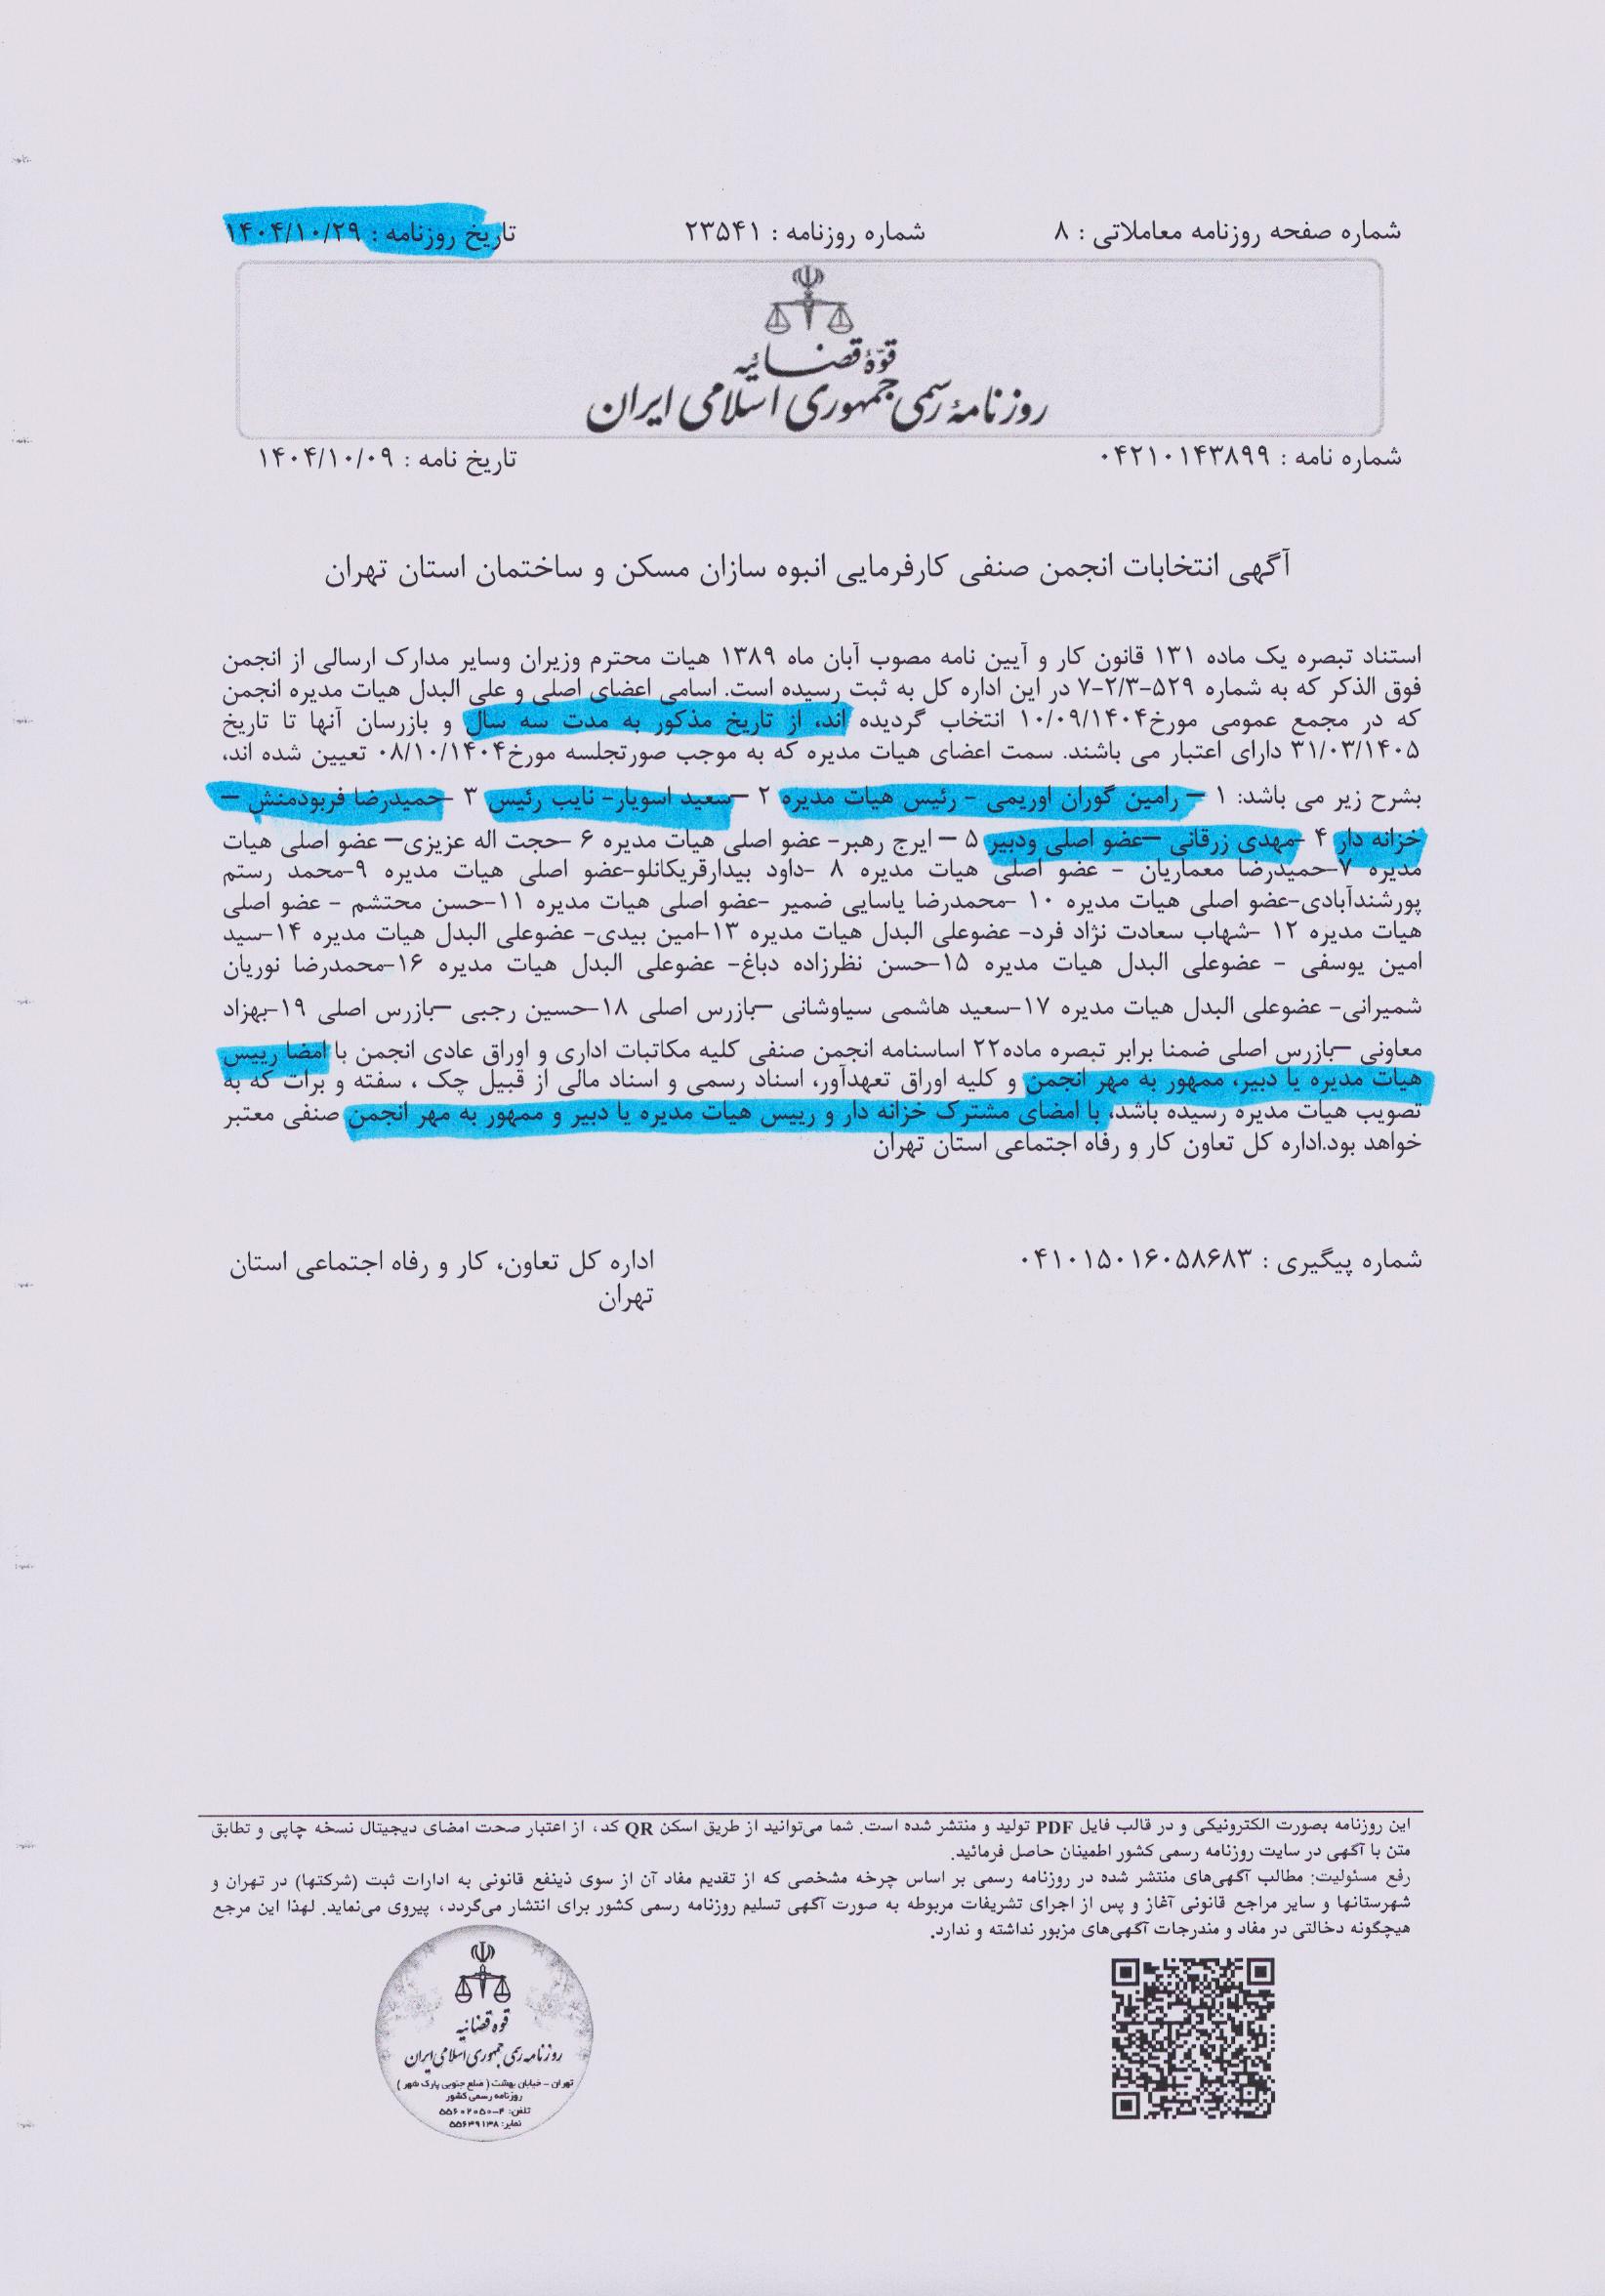 شماره صفحه روزنامه معاملاتی : ۸
شماره روزنامه : ۲۳۵۴۱
تاریخ روزنامه : ۱۴۰۴/۱۰/۲۹
قوّهٔ قضائیه
روزنامهٔ رسمی جمهوری اسلامی ایران
شماره نامه : ۰۴۲۱۰۱۴۳۸۹۹
تاریخ نامه : ۱۴۰۴/۱۰/۰۹
آگهی انتخابات انجمن صنفی کارفرمایی انبوه سازان مسکن و ساختمان استان تهران
استناد تبصره یک ماده ۱۳۱ قانون کار و آیین نامه مصوب آبان ماه ۱۳۸۹ هیات محترم وزیران وسایر مدارک ارسالی از انجمن
فوق الذکر که به شماره ۵۲۹-۲/۳-۷ در این اداره کل به ثبت رسیده است. اسامی اعضای اصلی و علی البدل هیات مدیره انجمن
که در مجمع عمومی مورخ۱۰/۰۹/۱۴۰۴ انتخاب گردیده اند، از تاریخ مذکور به مدت سه سال و بازرسان آنها تا تاریخ
۳۱/۰۳/۱۴۰۵ دارای اعتبار می باشند. سمت اعضای هیات مدیره که به موجب صورتجلسه مورخ۰۸/۱۰/۱۴۰۴ تعیین شده اند،
بشرح زیر می باشد: ۱ – رامین گوران اوریمی - رئیس هیات مدیره ۲ –سعید اسویار- نایب رئیس ۳ –حمیدرضا فربودمنش –
خزانه دار ۴ -مهدی زرقانی –عضو اصلی ودبیر ۵ – ایرج رهبر- عضو اصلی هیات مدیره ۶ -حجت اله عزیزی– عضو اصلی هیات
مدیره ۷-حمیدرضا معماریان - عضو اصلی هیات مدیره ۸ -داود بیدارقریکانلو-عضو اصلی هیات مدیره ۹-محمد رستم
پورشندآبادی-عضو اصلی هیات مدیره ۱۰ -محمدرضا یاسایی ضمیر -عضو اصلی هیات مدیره ۱۱-حسن محتشم - عضو اصلی
هیات مدیره ۱۲ -شهاب سعادت نژاد فرد- عضوعلی البدل هیات مدیره ۱۳-امین بیدی- عضوعلی البدل هیات مدیره ۱۴-سید
امین یوسفی - عضوعلی البدل هیات مدیره ۱۵-حسن نظرزاده دباغ- عضوعلی البدل هیات مدیره ۱۶-محمدرضا نوریان
شمیرانی- عضوعلی البدل هیات مدیره ۱۷-سعید هاشمی سیاوشانی –بازرس اصلی ۱۸-حسین رجبی –بازرس اصلی ۱۹-بهزاد
معاونی –بازرس اصلی ضمنا برابر تبصره ماده۲۲ اساسنامه انجمن صنفی کلیه مکاتبات اداری و اوراق عادی انجمن با امضا رییس
هیات مدیره یا دبیر، ممهور به مهر انجمن و کلیه اوراق تعهدآور، اسناد رسمی و اسناد مالی از قبیل چک ، سفته و برات که به
تصویب هیات مدیره رسیده باشد، با امضای مشترک خزانه دار و رییس هیات مدیره یا دبیر و ممهور به مهر انجمن صنفی معتبر
خواهد بود.اداره کل تعاون کار و رفاه اجتماعی استان تهران
شماره پیگیری : ۰۴۱۰۱۵۰۱۶۰۵۸۶۸۳
اداره کل تعاون، کار و رفاه اجتماعی استان
تهران
این روزنامه بصورت الکترونیکی و در قالب فایل PDF تولید و منتشر شده است. شما می‌توانید از طریق اسکن QR کد، از اعتبار صحت امضای دیجیتال نسخه چاپی و تطابق
متن با آگهی در سایت روزنامه رسمی کشور اطمینان حاصل فرمائید.
رفع مسئولیت: مطالب آگهی‌های منتشر شده در روزنامه رسمی بر اساس چرخه مشخصی که از تقدیم مفاد آن از سوی ذینفع قانونی به ادارات ثبت (شرکتها) در تهران و
شهرستانها و سایر مراجع قانونی آغاز و پس از اجرای تشریفات مربوطه به صورت آگهی تسلیم روزنامه رسمی کشور برای انتشار می‌گردد، پیروی می‌نماید. لهذا این مرجع
هیچگونه دخالتی در مفاد و مندرجات آگهی‌های مزبور نداشته و ندارد.
قوه قضائیه
روزنامه رسمی جمهوری اسلامی ایران
تهران - خیابان بهشت ( ضلع جنوبی پارک شهر )
روزنامه رسمی کشور
تلفن: ۴-۵۵۶۰۲۰۵۰
نمابر: ۵۵۶۳۹۱۳۸